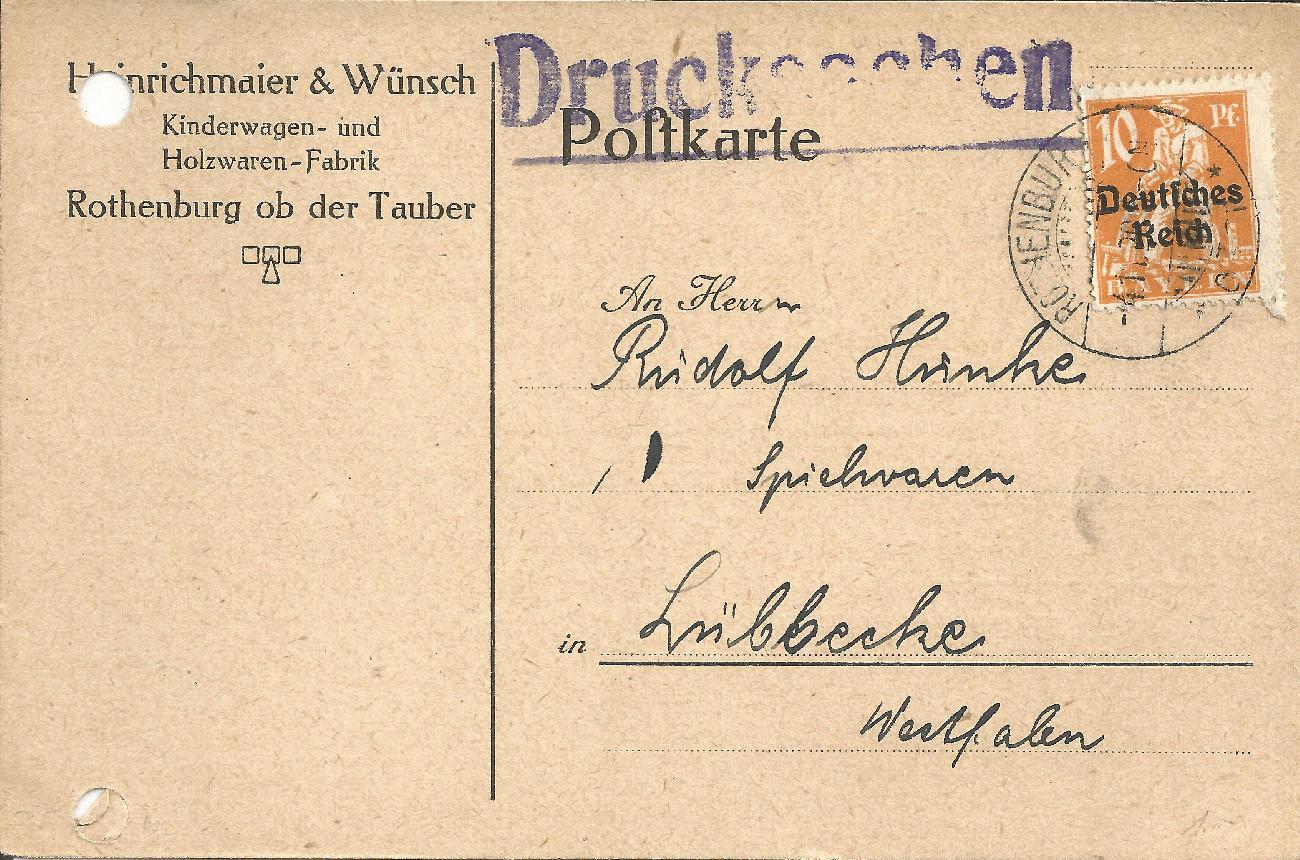 Heinrichmaier & Wünsch
Kinderwagen- und
Holzwaren-Fabrik
Rothenburg ob der Tauber
Drucksachen
Poſtkarte
10 Pf.
Deutſches
Reich
BAYERN
An Herrn
Rudolf Hünke
Spielwaren
in Lübbecke
Westfalen